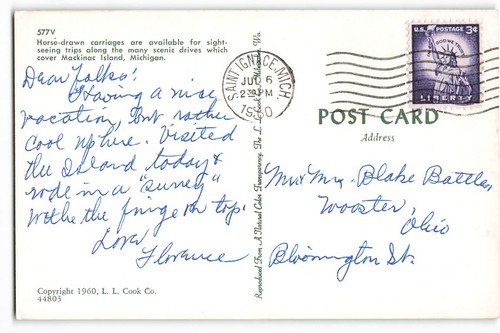 577V
Horse-drawn carriages are available for sight-
seeing trips along the many scenic drives which
cover Mackinac Island, Michigan.
Dear Folks:
Having a nice
vacation, but rather
cool up here. Visited
the Island today &
rode in a "surrey"
with the fringe on top.
Love
Florence
Copyright 1960, L. L. Cook Co.
44803
Reproduced From A Natural Color Transparency, The L. L. Cook Co., Milwaukee, Wis.
SAINT IGNACE, MICH.
JUL 6
2 PM
1960
U.S. POSTAGE 3¢
IN GOD WE TRUST
LIBERTY
POST CARD
Address
Mr & Mrs. Blake Battles
Wooster,
Ohio
Bloomington St.